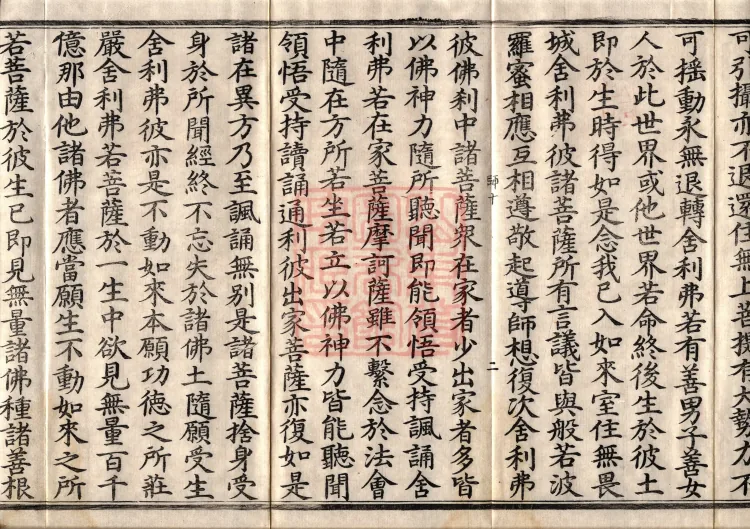 可引攝亦不退還住無上菩提有大勢力不
可揺動永無退轉舍利弗若有善男子善女
人於此世界或他世界若命終後生於彼土
即於生時得如是念我已入如來室住無畏
城舍利弗彼諸菩薩所有言議皆與般若波
羅蜜相應互相遵敬起導師想復次舍利弗
師十
二
彼佛刹中諸菩薩眾在家者少出家者多皆
以佛神力隨所聽聞即能領悟受持諷誦舍
利弗若在家菩薩摩訶薩雖不繫念於法會
中隨在方所若坐若立以佛神力皆能聽聞
領悟受持讀誦通利彼出家菩薩亦復如是
諸在異方乃至諷誦無別是諸菩薩捨身受
身於所聞經終不忘失於諸佛土隨願受生
舍利弗彼亦是不動如來本願功德之所莊
嚴舍利弗若菩薩於一生中欲見無量百千
億那由他諸佛者應當願生不動如來之所
若菩薩於彼生已即見無量諸佛種諸善根